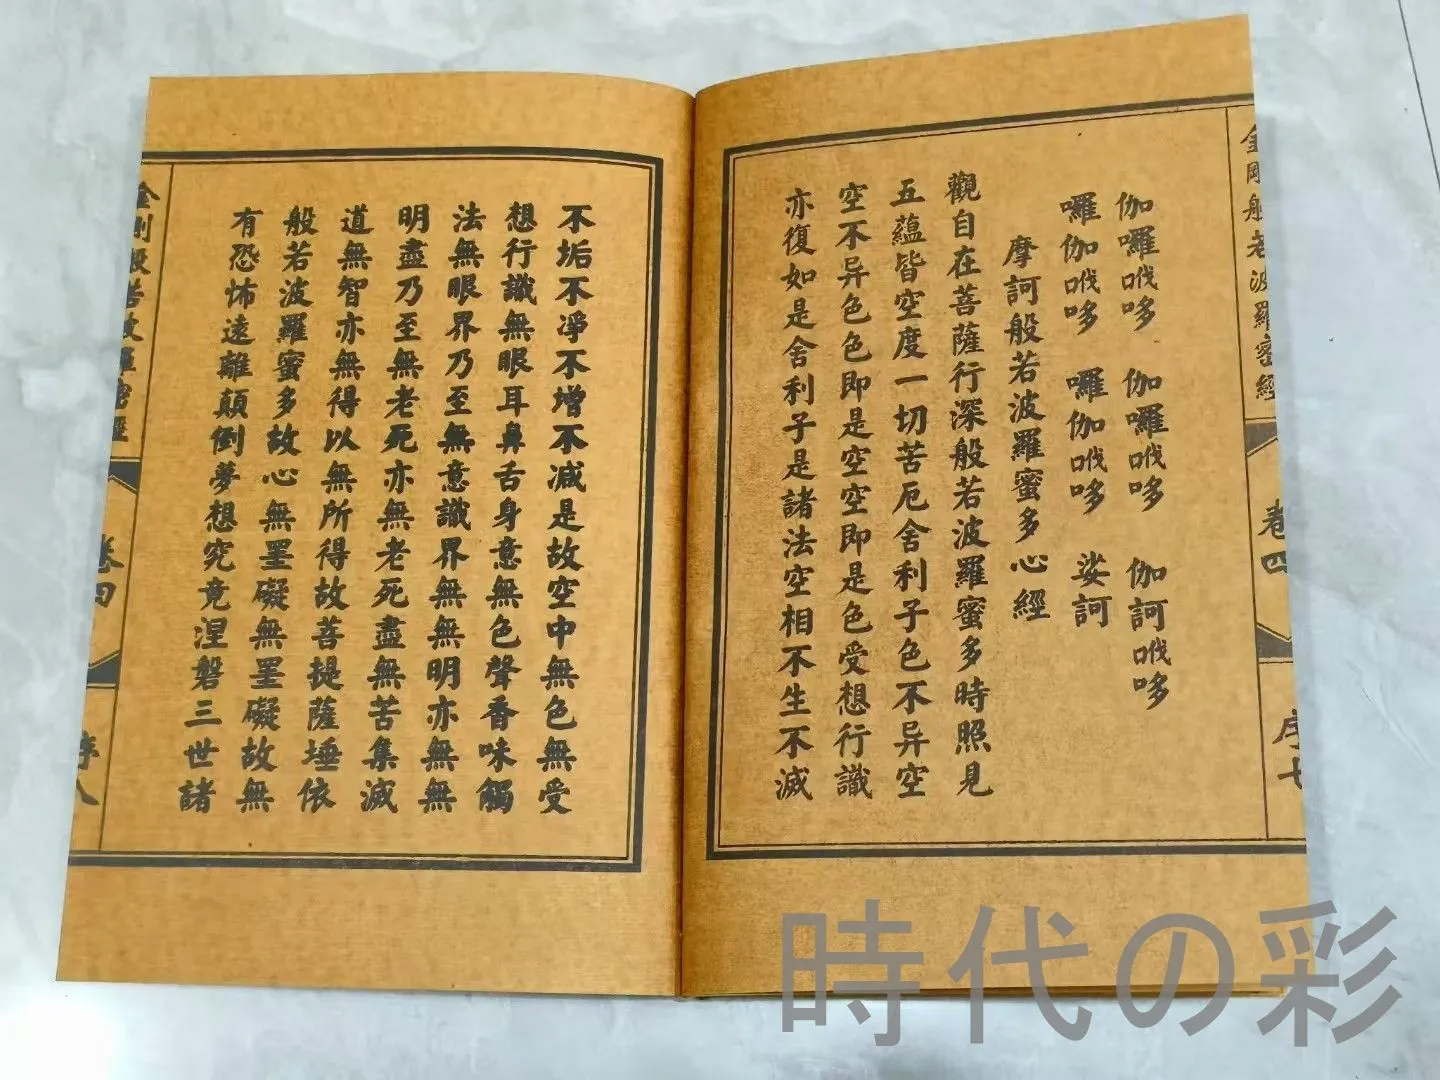 金剛般若波羅蜜經 卷四 序七
伽囉哆 伽囉哆 伽訶哆
囉伽哆 囉伽哆 娑訶
摩訶般若波羅蜜多心經
觀自在菩薩行深般若波羅蜜多時照見
五蘊皆空度一切苦厄舍利子色不异空
空不异色色即是空空即是色受想行識
亦復如是舍利子是諸法空相不生不滅
不垢不凈不增不减是故空中無色無受
想行識無眼耳鼻舌身意無色聲香味觸
法無眼界乃至無意識界無無明亦無無
明盡乃至無老死亦無老死盡無苦集滅
道無智亦無得以無所得故菩提薩埵依
般若波羅蜜多故心無罣礙無罣礙故無
有恐怖遠離顛倒夢想究竟涅磐三世諸
金剛般若波羅蜜經 卷四 序八
時代の彩